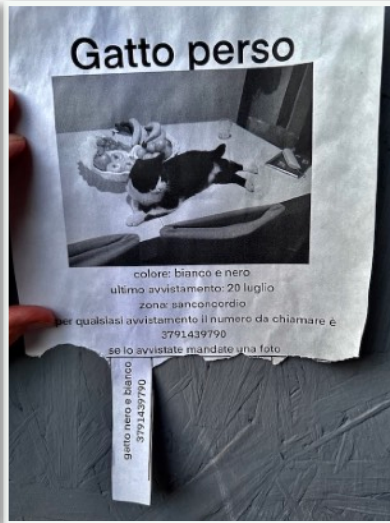 Gatto perso
colore: bianco e nero
ultimo avvistamento: 20 luglio
zona: sanconcordio
per qualsiasi avvistamento il numero da chiamare è
3791439790
se lo avvistate mandate una foto
gatto nero e bianco
3791439790